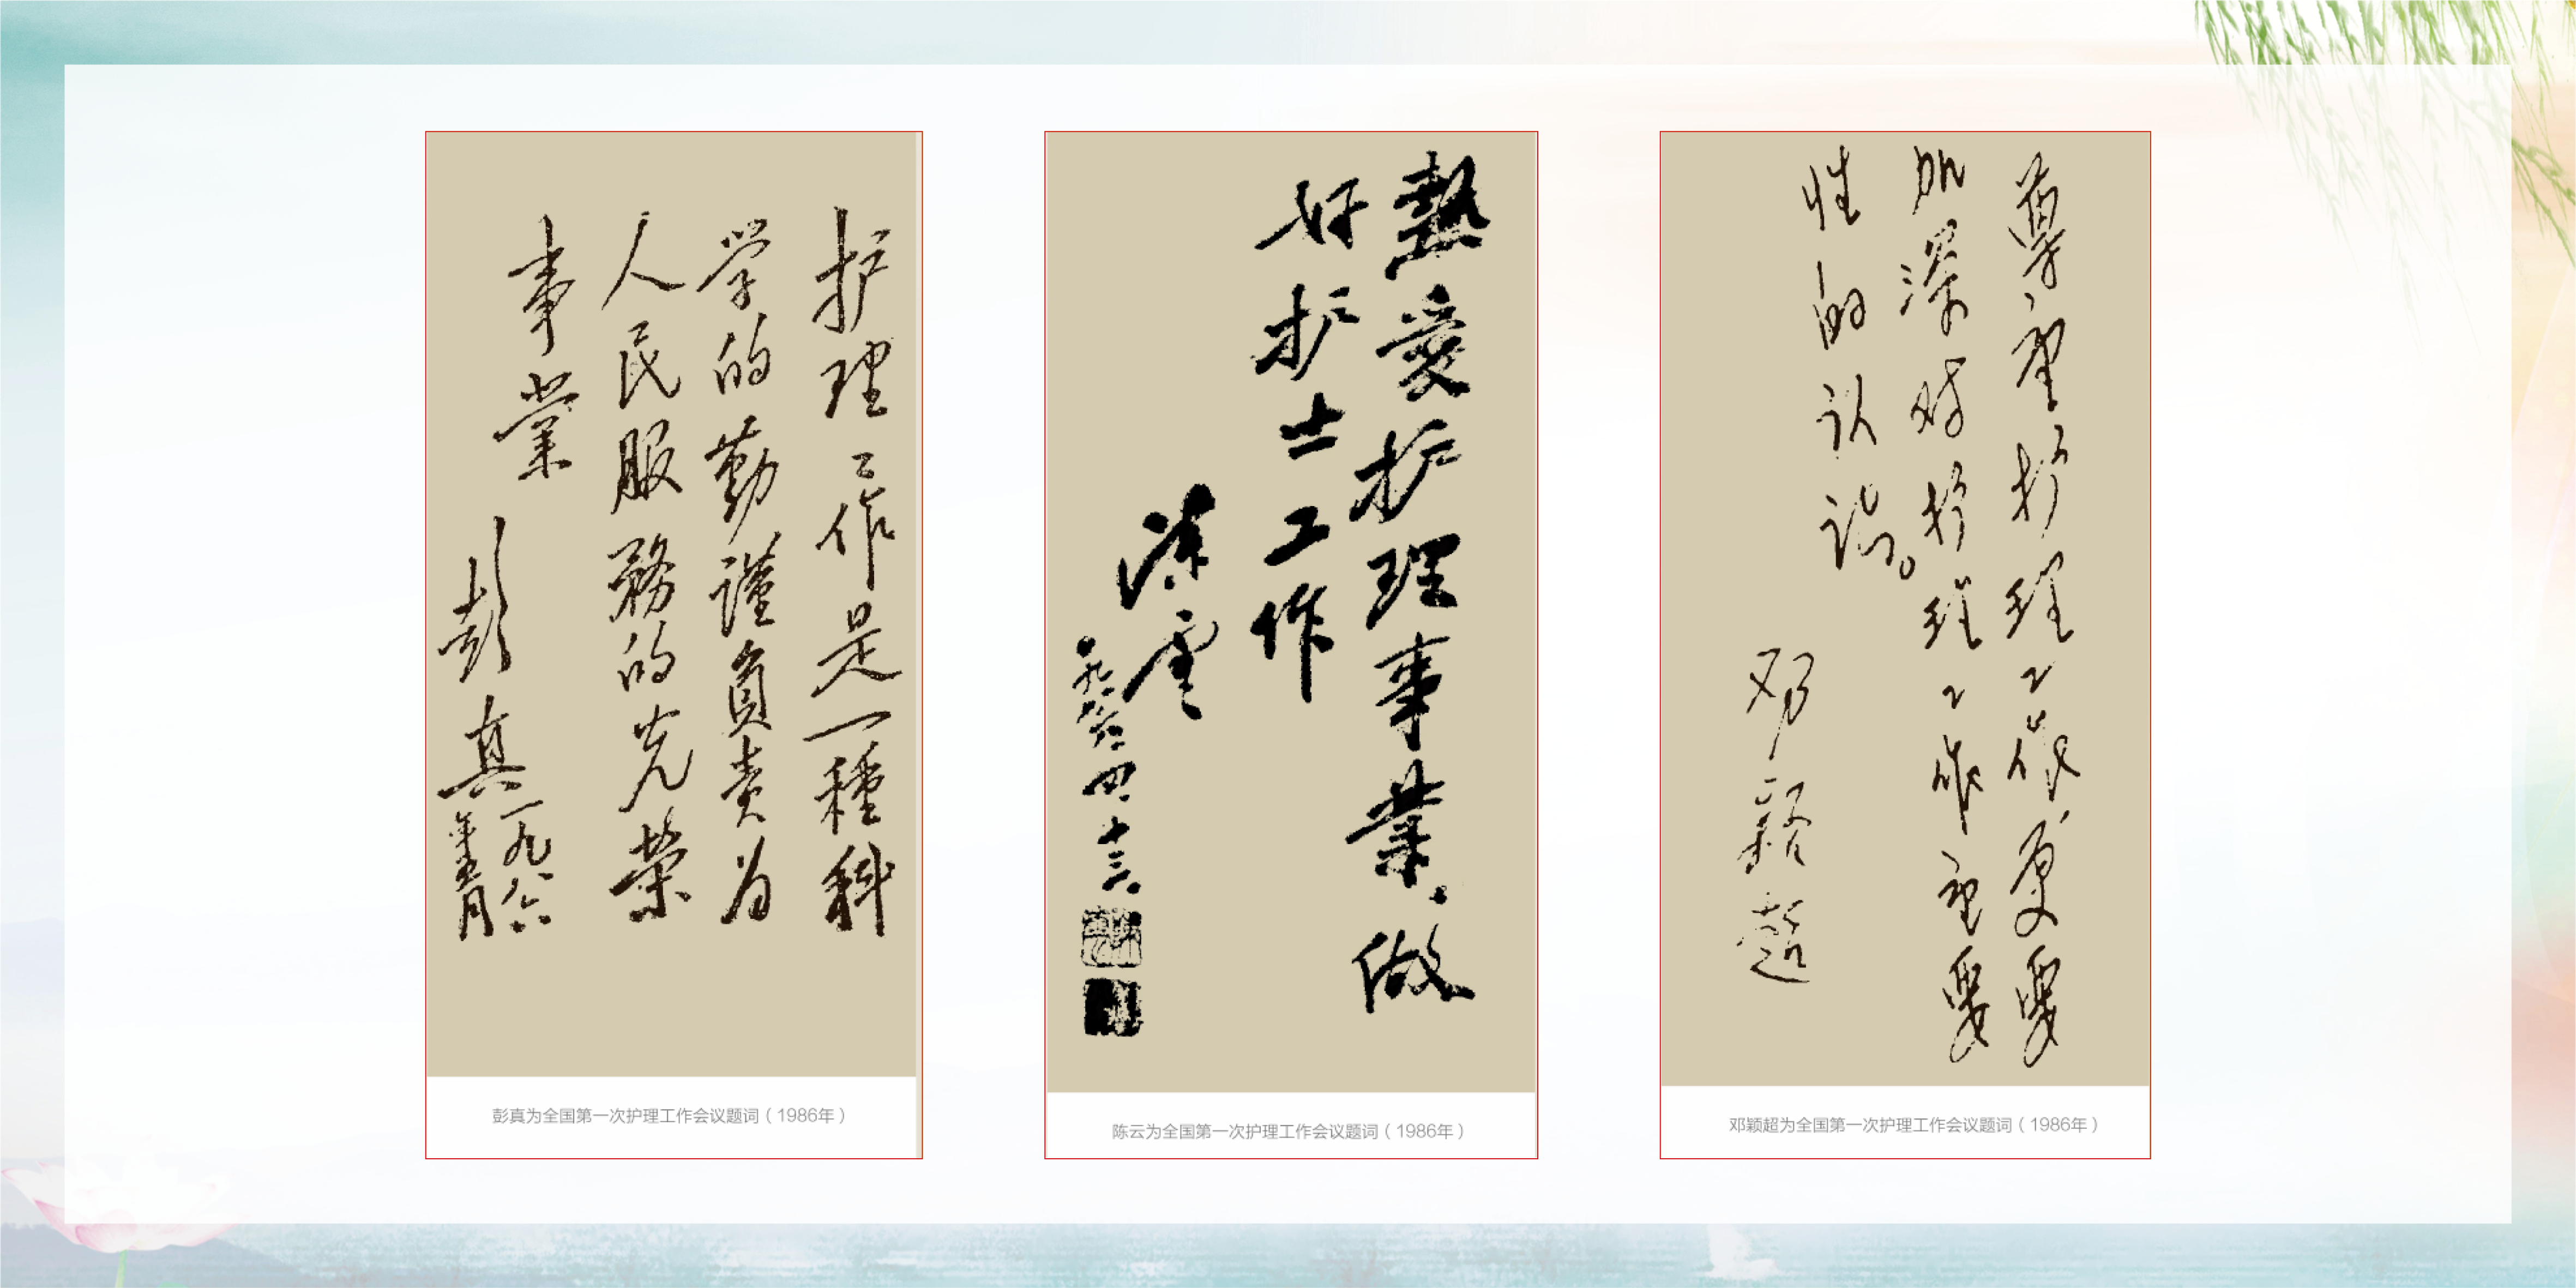 护理工作是一種科
学的勤謹負责为
人民服務的光荣
事業
彭真
一九八六
年五月
彭真为全国第一次护理工作会议题词（1986年）
熱愛护理事業，做
好护士工作
陈雲
一九八六、四、十三、
陈云为全国第一次护理工作会议题词（1986年）
尊重护理工作，更要
加深对护理工作重要
性的认识。
邓颖超
邓颖超为全国第一次护理工作会议题词（1986年）